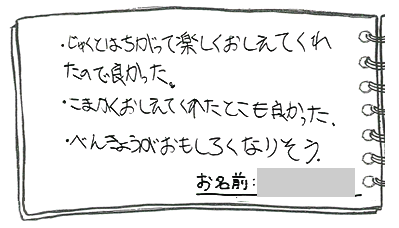 ・じゅくとはちがって楽しくおしえてくれ
たので良かった。
・こまかくおしえてくれたとこも良かった.
・べんきょうがおもしろくなりそう.
お名前: